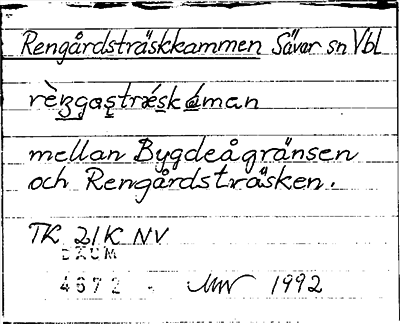 Rengårdsträskkammen Sävar sn Vbl
mellan Bygdeågränsen
och Rengårdsträsken.
TK 21K NV
DAUM
4672 - 1992